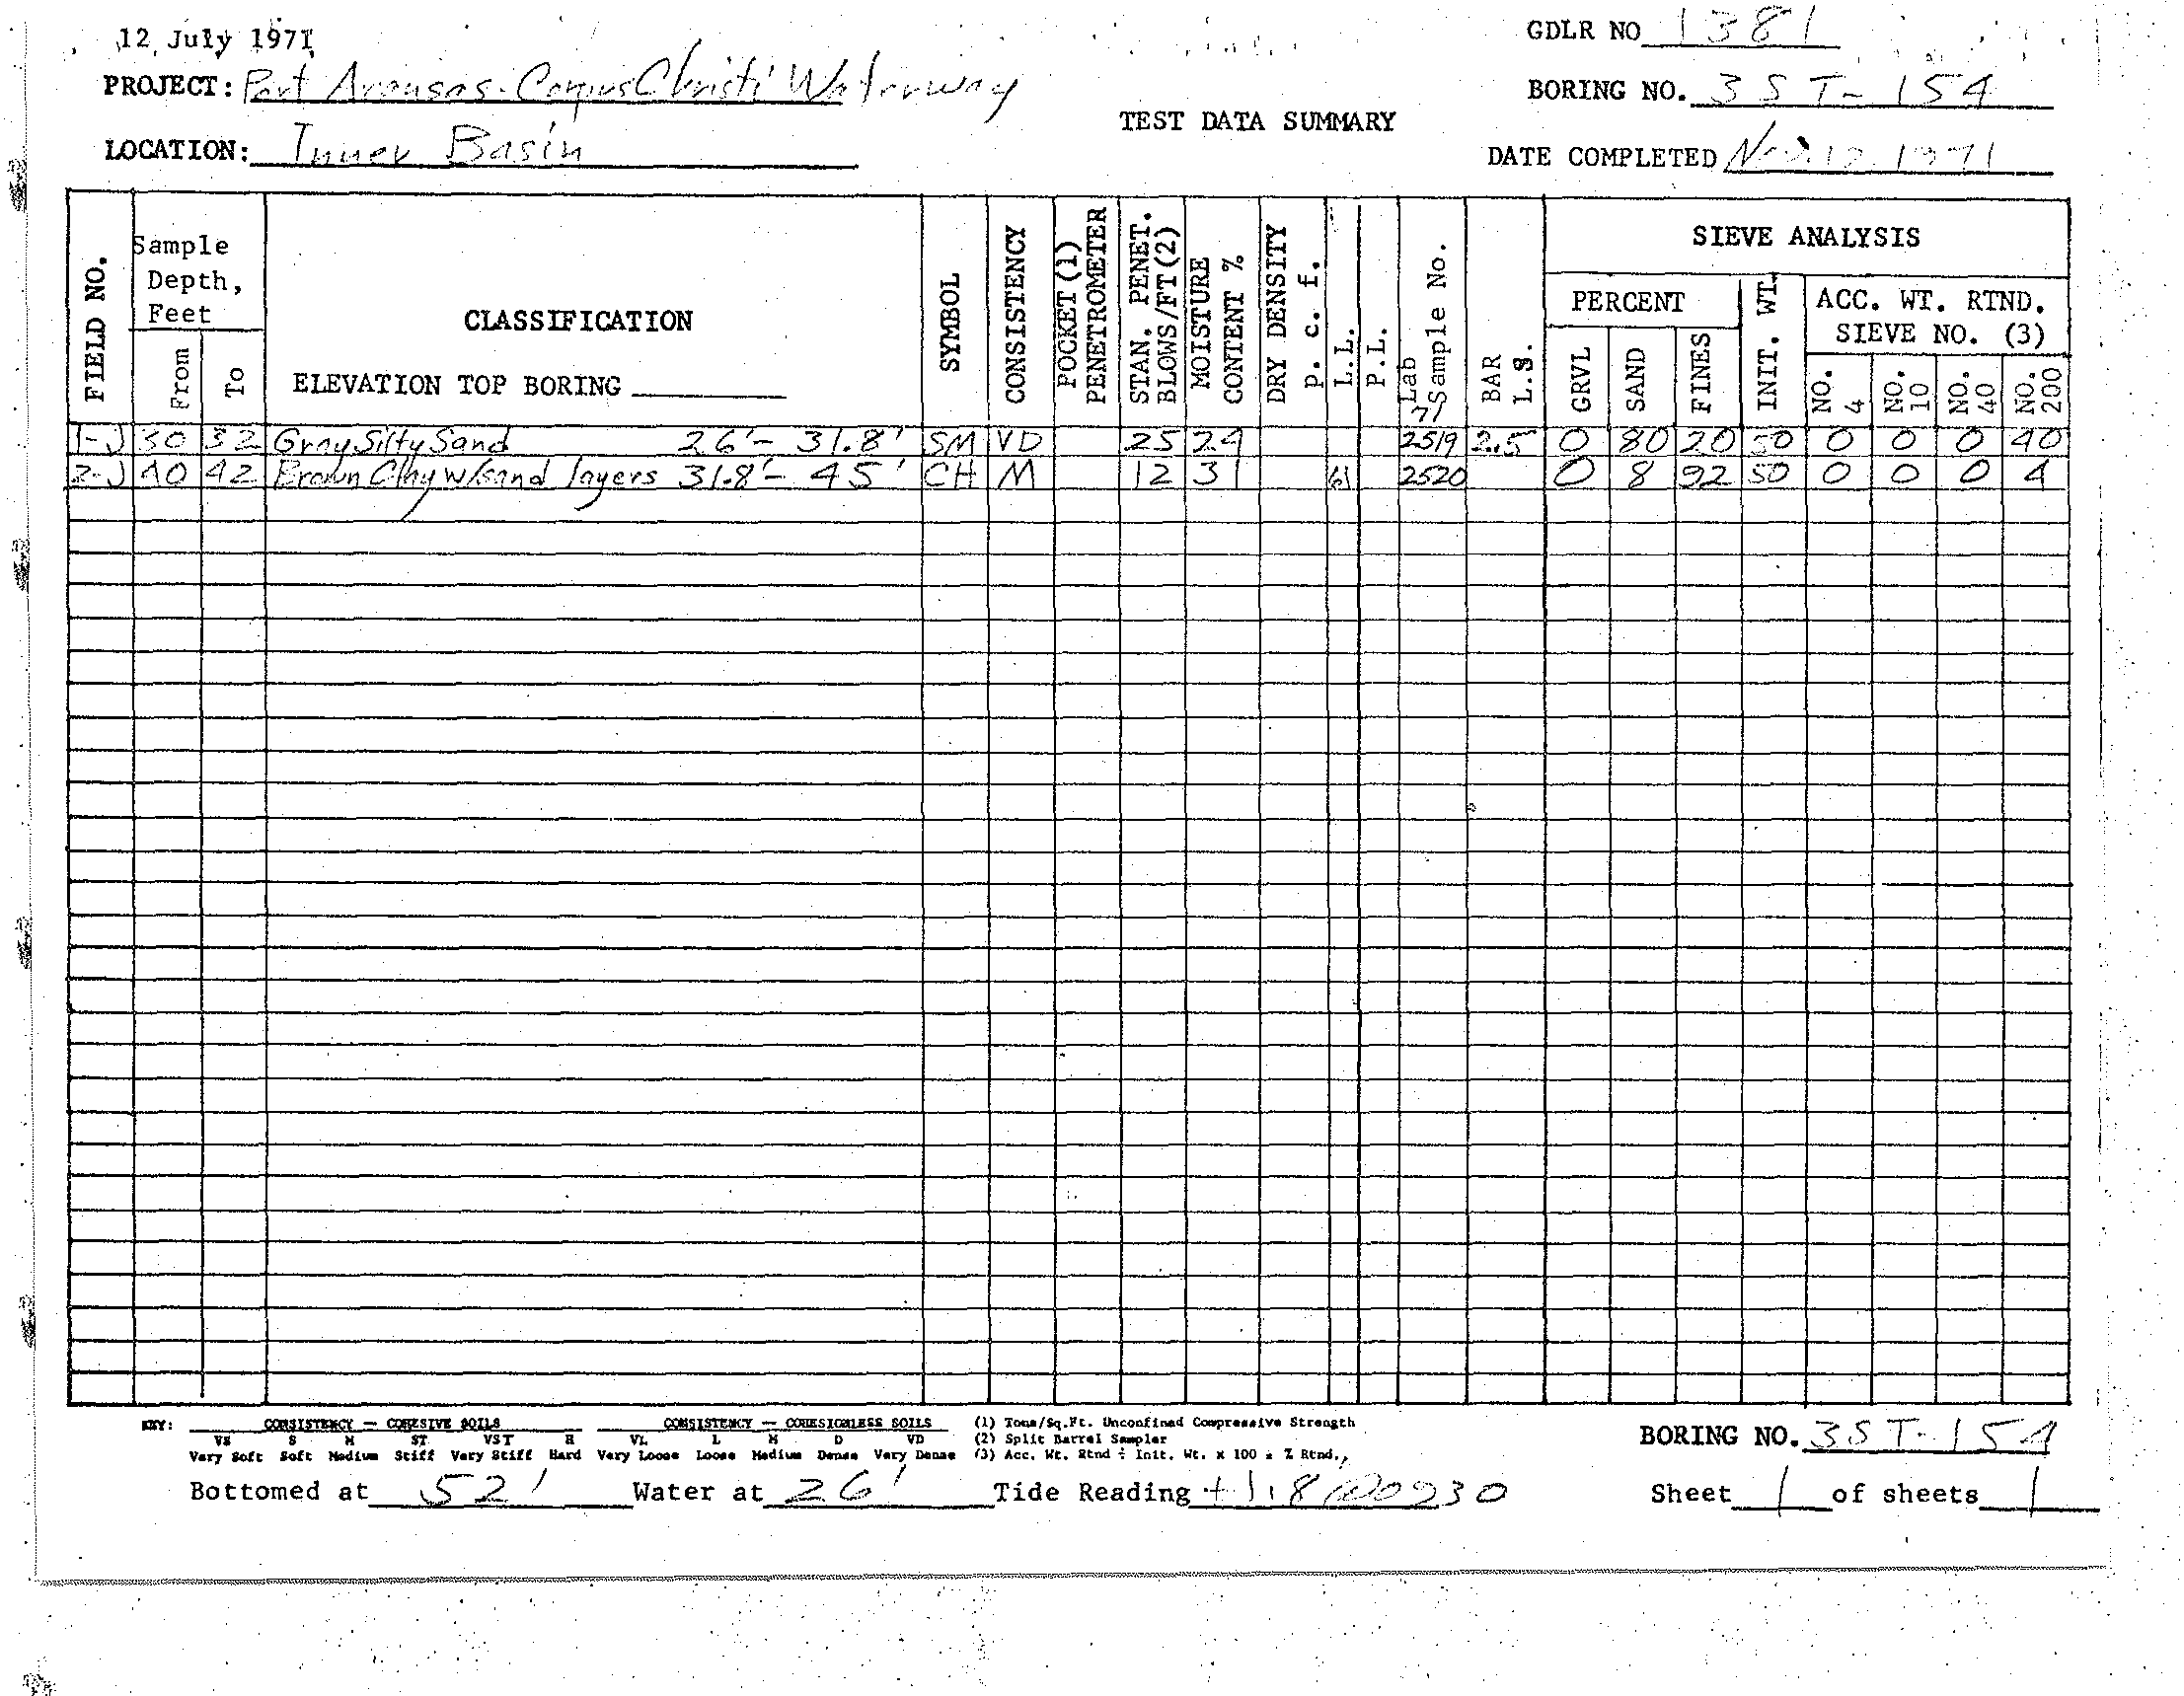 12 July 1971
GDLR NO 1381
PROJECT: Port Aransas-Corpus Christi Waterway
BORING NO. 3ST-154
TEST DATA SUMMARY
LOCATION: Inner Basin
DATE COMPLETED Nov. 12, 1971
FIELD NO.
Sample Depth, Feet
From
To
CLASSIFICATION
ELEVATION TOP BORING
SYMBOL
CONSISTENCY
POCKET (1) PENETROMETER
STAN. PENET. BLOWS/FT (2)
MOISTURE CONTENT %
DRY DENSITY p. c. f.
L.L.
P.L.
Lab Sample No.
BAR L.S.
SIEVE ANALYSIS
PERCENT
GRVL
SAND
FINES
INIT. WT.
ACC. WT. RTND.
SIEVE NO. (3)
NO. 4
NO. 10
NO. 40
NO. 200
71-
1-J 30 32 Gray Silty Sand 26'- 31.8' SM VD 25 24 2519 2.5 0 80 20 50 0 0 0 40
2-J 40 42 Brown Clay w/sand layers 31.8'- 45' CH M 12 31 61 2520 0 8 92 50 0 0 0 4
KEY: CONSISTENCY — COHESIVE SOILS CONSISTENCY — COHESIONLESS SOILS (1) Tons/Sq.Ft. Unconfined Compressive Strength
VS S M ST VST H VL L M D VD (2) Split Barrel Sampler
Very Soft Soft Medium Stiff Very Stiff Hard Very Loose Loose Medium Dense Very Dense (3) Acc. Wt. Rtnd ÷ Init. Wt. x 100 = % Rtnd.,
BORING NO. 3ST-154
Bottomed at 52' Water at 26' Tide Reading +1.8@0930 Sheet 1 of sheets 1